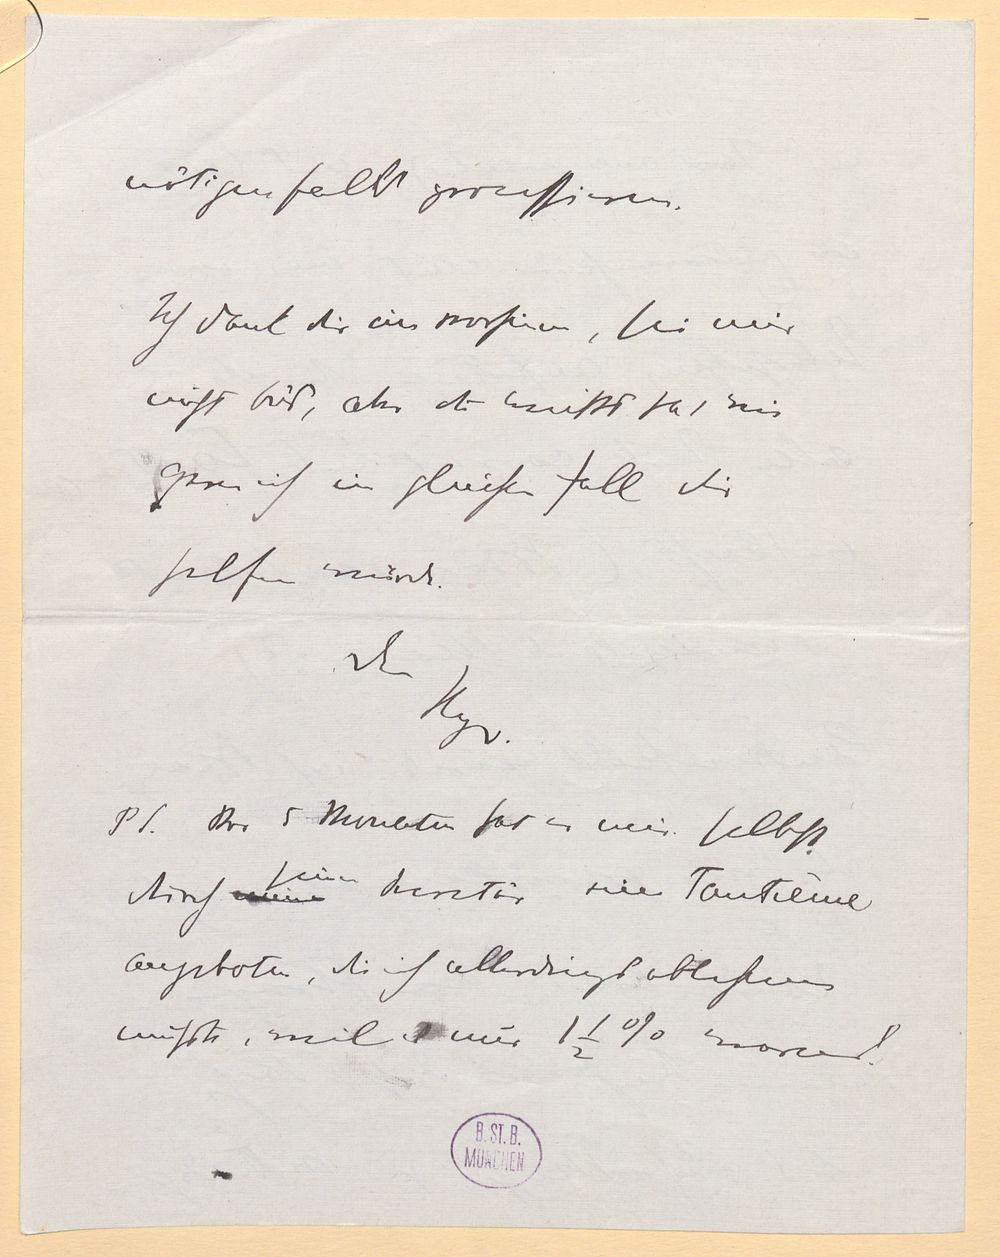 nötigenfalls prozessieren.
Ich dank dir im vorhinein, sei mir
nicht bös, aber du weißt ja, wie
gern ich im gleichen Fall dir
helfen würde.
Dein
Hugo.
PS. Vor 5 Monaten hat er mir selbst
durch seinen eine Tantième
angeboten, die ich allerdings ablehnen
mußte, weil es nur 1 1/2 % waren!
B. ST. B.
MÜNCHEN